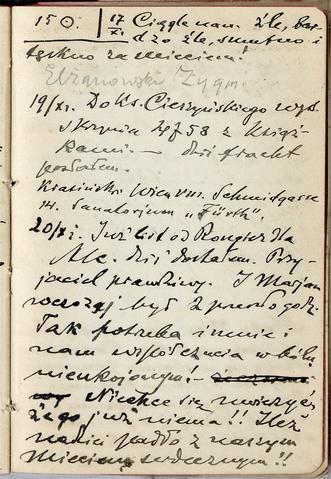 150. 17/XI. Ciągle nam źle, bar-
dzo źle, smutno i
tęskno za Mieciem!
19/XI. Do Ks. Cieszyńskiego
skrzynia z Książ-
kami. — dziś fracht
posłałem.
Krasiński Wien VIII. Schmidgasse
14. Sanatorjum „Fürth".
20/XI. Już list od Rongier Dla
dziś dostałem. Przy-
jaciel prawdziwy. I Marjan
wczoraj był z prawdo godz.
Tak potrzeba i mnie i
nam współczucia w bólu
nieukojonym! —
Niechce się wierzyć,
że go już niema!! Ileż
nadziei padło z naszym
Mieciem serdecznym!!